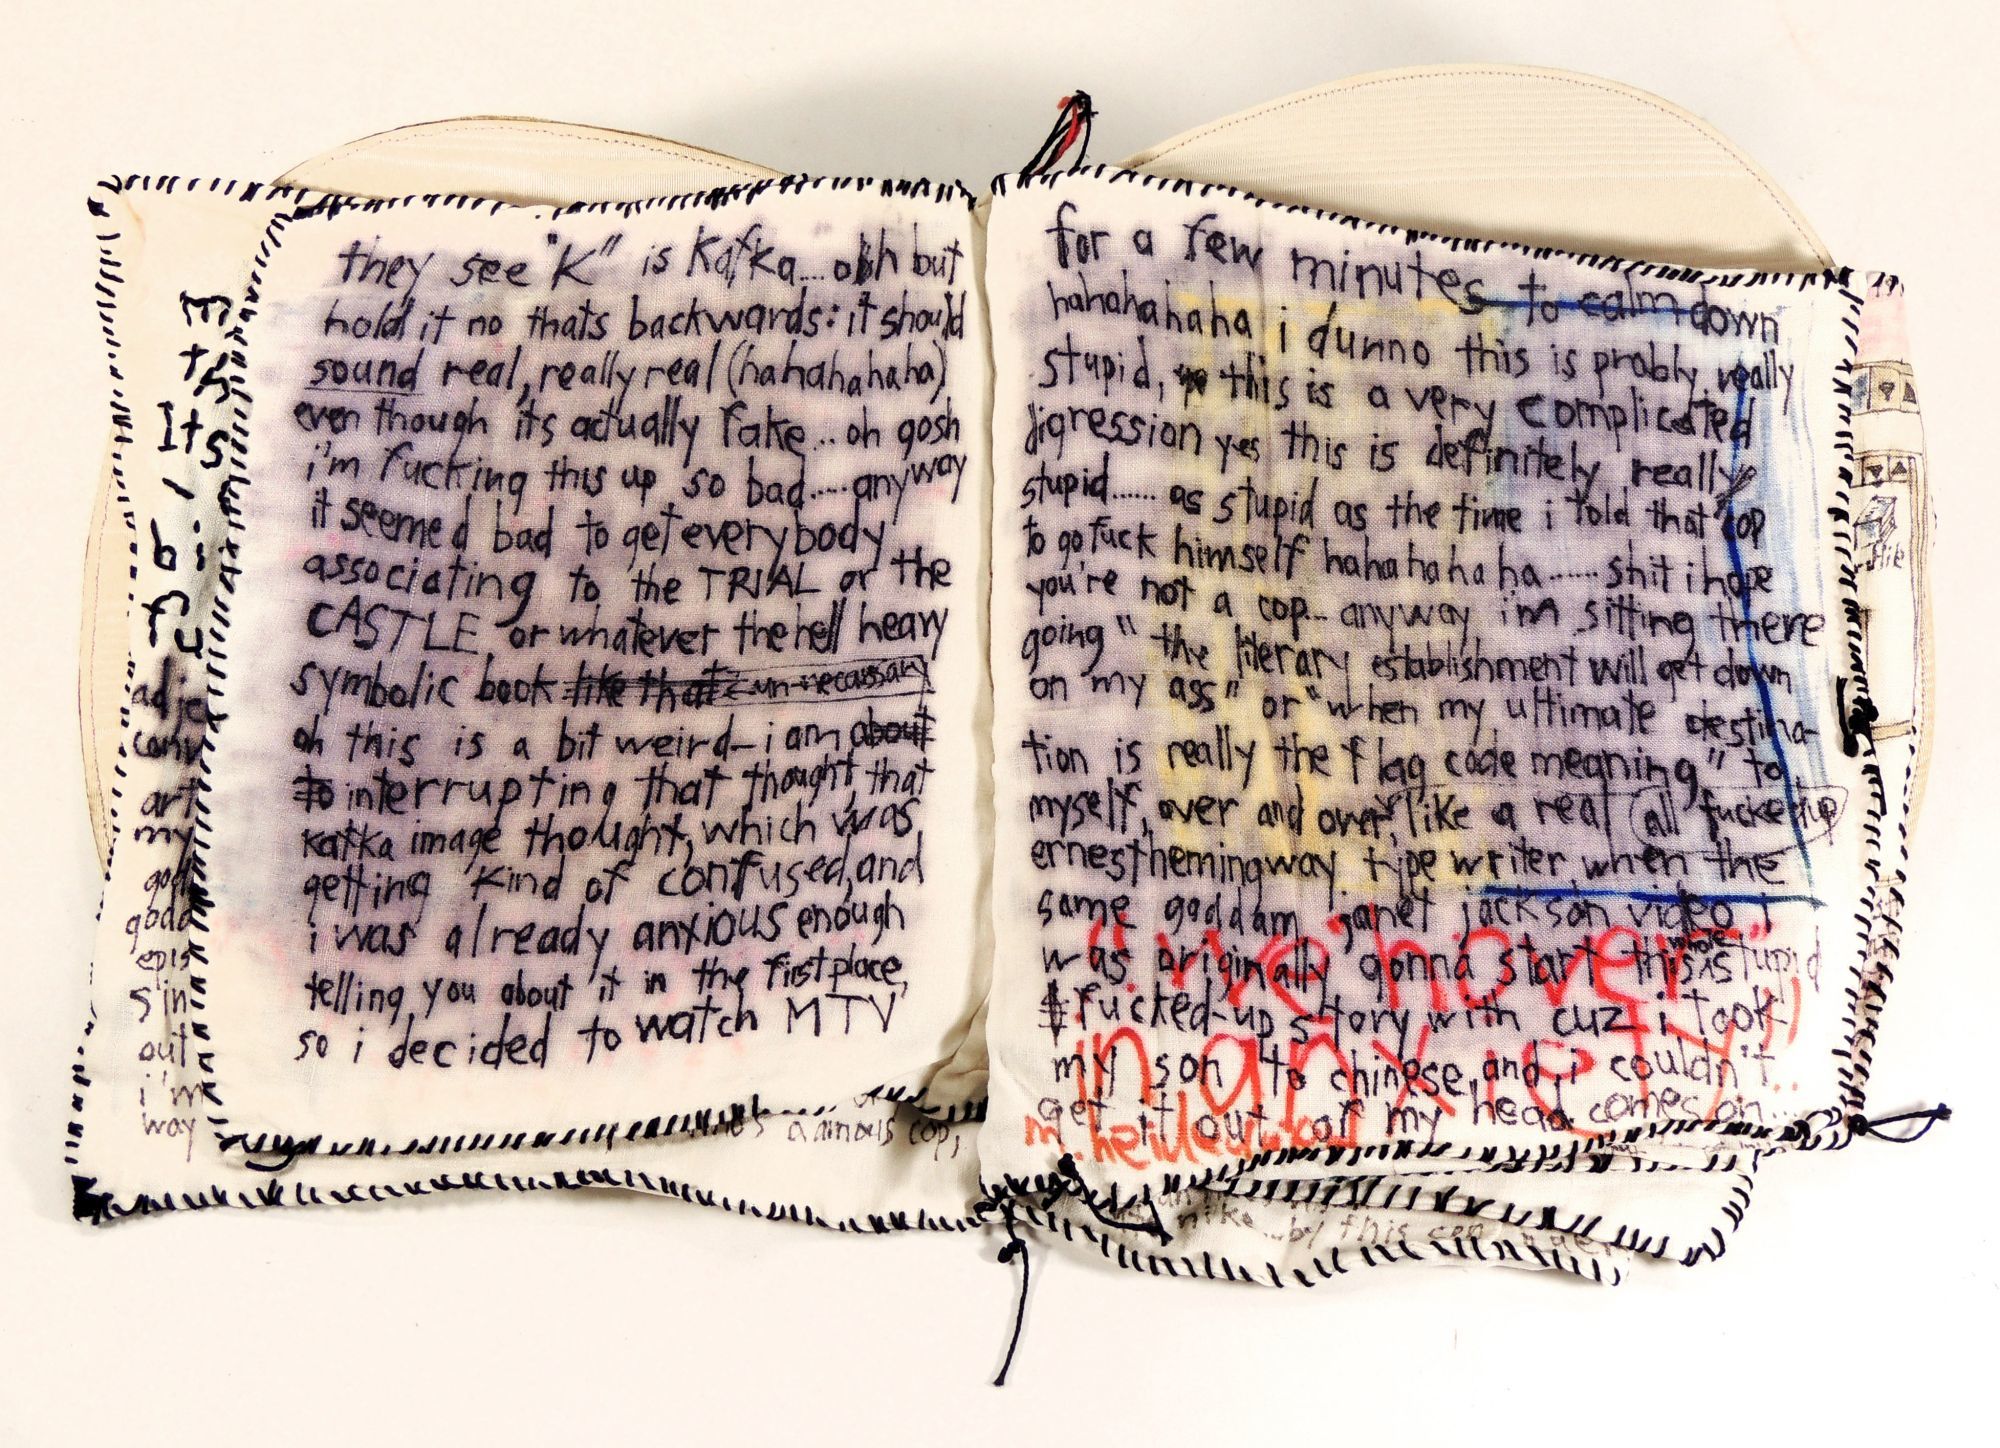 they see "K" is Kafka.... ohh but
hold it no thats backwards: it should
sound real, really real (hahahahaha)
even though its actually fake... oh gosh
i'm fucking this up so bad..... anyway
it seemed bad to get everybody
associating to the TRIAL or the
CASTLE or whatever the hell heavy
symbolic book like that un-necassary
oh this is a bit weird - i am about
to interrupting that thought, that
kafka image thought, which was
getting kind of confused, and
i was already anxious enough
telling you about it in the first place,
so i decided to watch MTV
for a few minutes to calm down
hahahahaha i dunno this is probly really
stupid, this is a very complicated
digression yes this is definitely really
stupid....... as stupid as the time i told that cop
to go fuck himself hahahahaha....... shit i hope
you're not a cop... anyway i'm sitting there
going " the literary establishment will get down
on my ass" or "when my ultimate destina-
tion is really the flag code meaning" to
myself, over and over, like a real all fucked up
ernesthemingway type writer when the
same goddam janet jackson video i
was originally gonna start this whole stupid
fucked-up story with cuz i took
my son to chinese, and i couldn't
get it out of my head comes on...
"we hover"
in anxiety"
adje
conv
art
my
god
godd
epis
sin
out
i'm
way
cop,
nike by this con